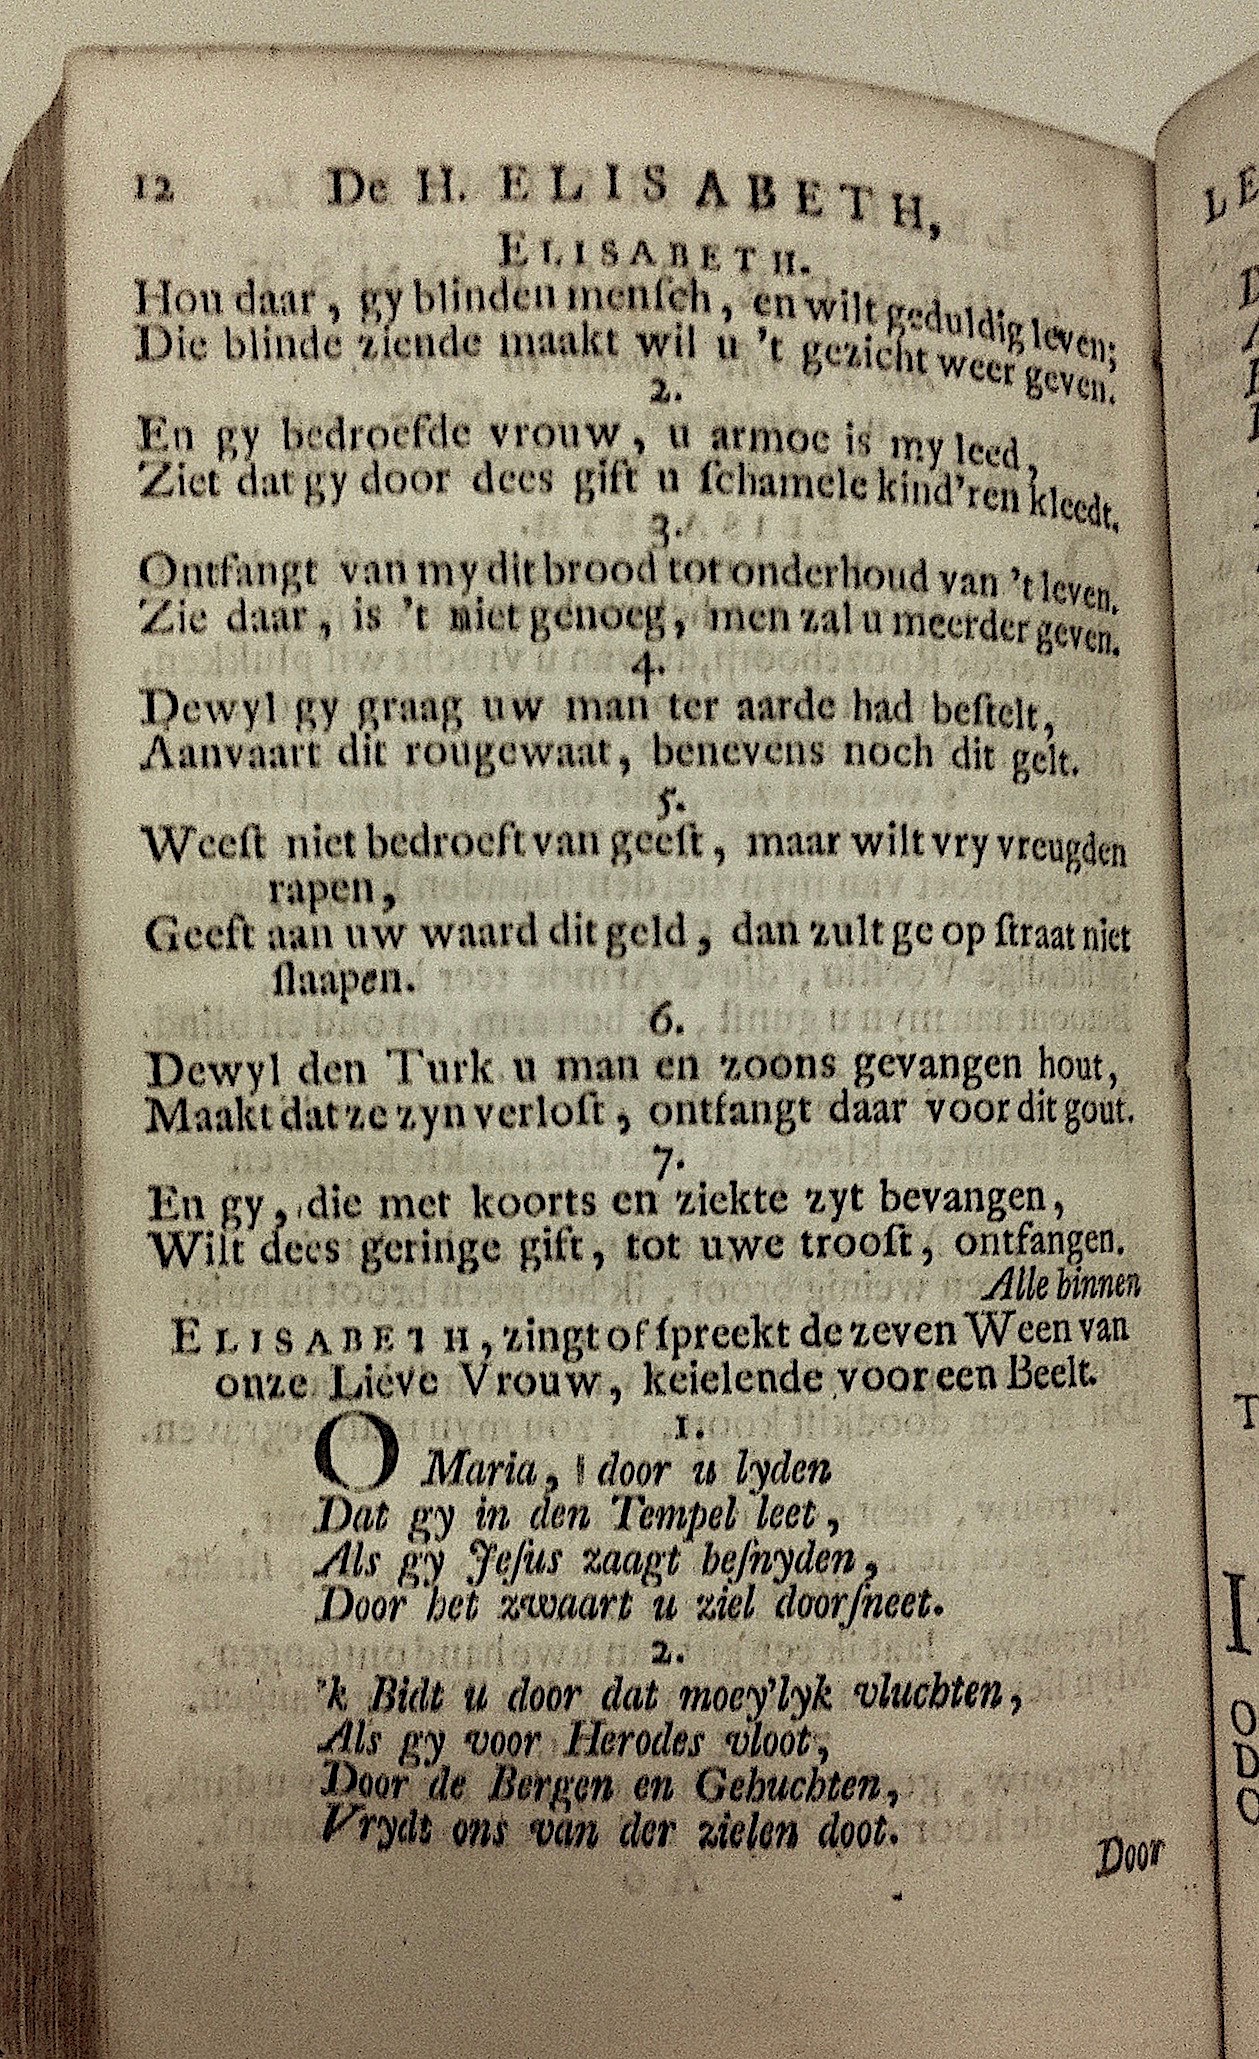 12 De H. ELISABETH,
ELISABETH.
Hou daar, gy blinden menſch, en wilt geduldig leven;
Die blinde ziende maakt wil u 't gezicht weer geven.
2.
En gy bedroefde vrouw, u armoe is my leed,
Ziet dat gy door dees gift u ſchamele kind'ren kleedt.
3.
Ontfangt van my dit brood tot onderhoud van 't leven.
Zie daar, is 't niet genoeg, men zal u meerder geven.
4.
Dewyl gy graag uw man ter aarde had beſtelt,
Aanvaart dit rougewaat, benevens noch dit gelt.
5.
Weeſt niet bedroeft van geeſt, maar wilt vry vreugden
rapen,
Geeft aan uw waard dit geld, dan zult ge op ſtraat niet
ſlaapen.
6.
Dewyl den Turk u man en zoons gevangen hout,
Maakt dat ze zyn verloſt, ontfangt daar voor dit gout.
7.
En gy, die met koorts en ziekte zyt bevangen,
Wilt dees geringe gift, tot uwe trooſt, ontfangen.
Alle binnen
ELISABETH, zingt of ſpreekt de zeven Ween van
onze Lieve Vrouw, keielende voor een Beelt.
1.
O Maria, door u lyden
Dat gy in den Tempel leet,
Als gy Jeſus zaagt beſnyden,
Door het zwaart u ziel doorſneet.
2.
'k Bidt u door dat moey'lyk vluchten,
Als gy voor Herodes vloot,
Door de Bergen en Gehuchten,
Vrydt ons van der zielen doot.
Door